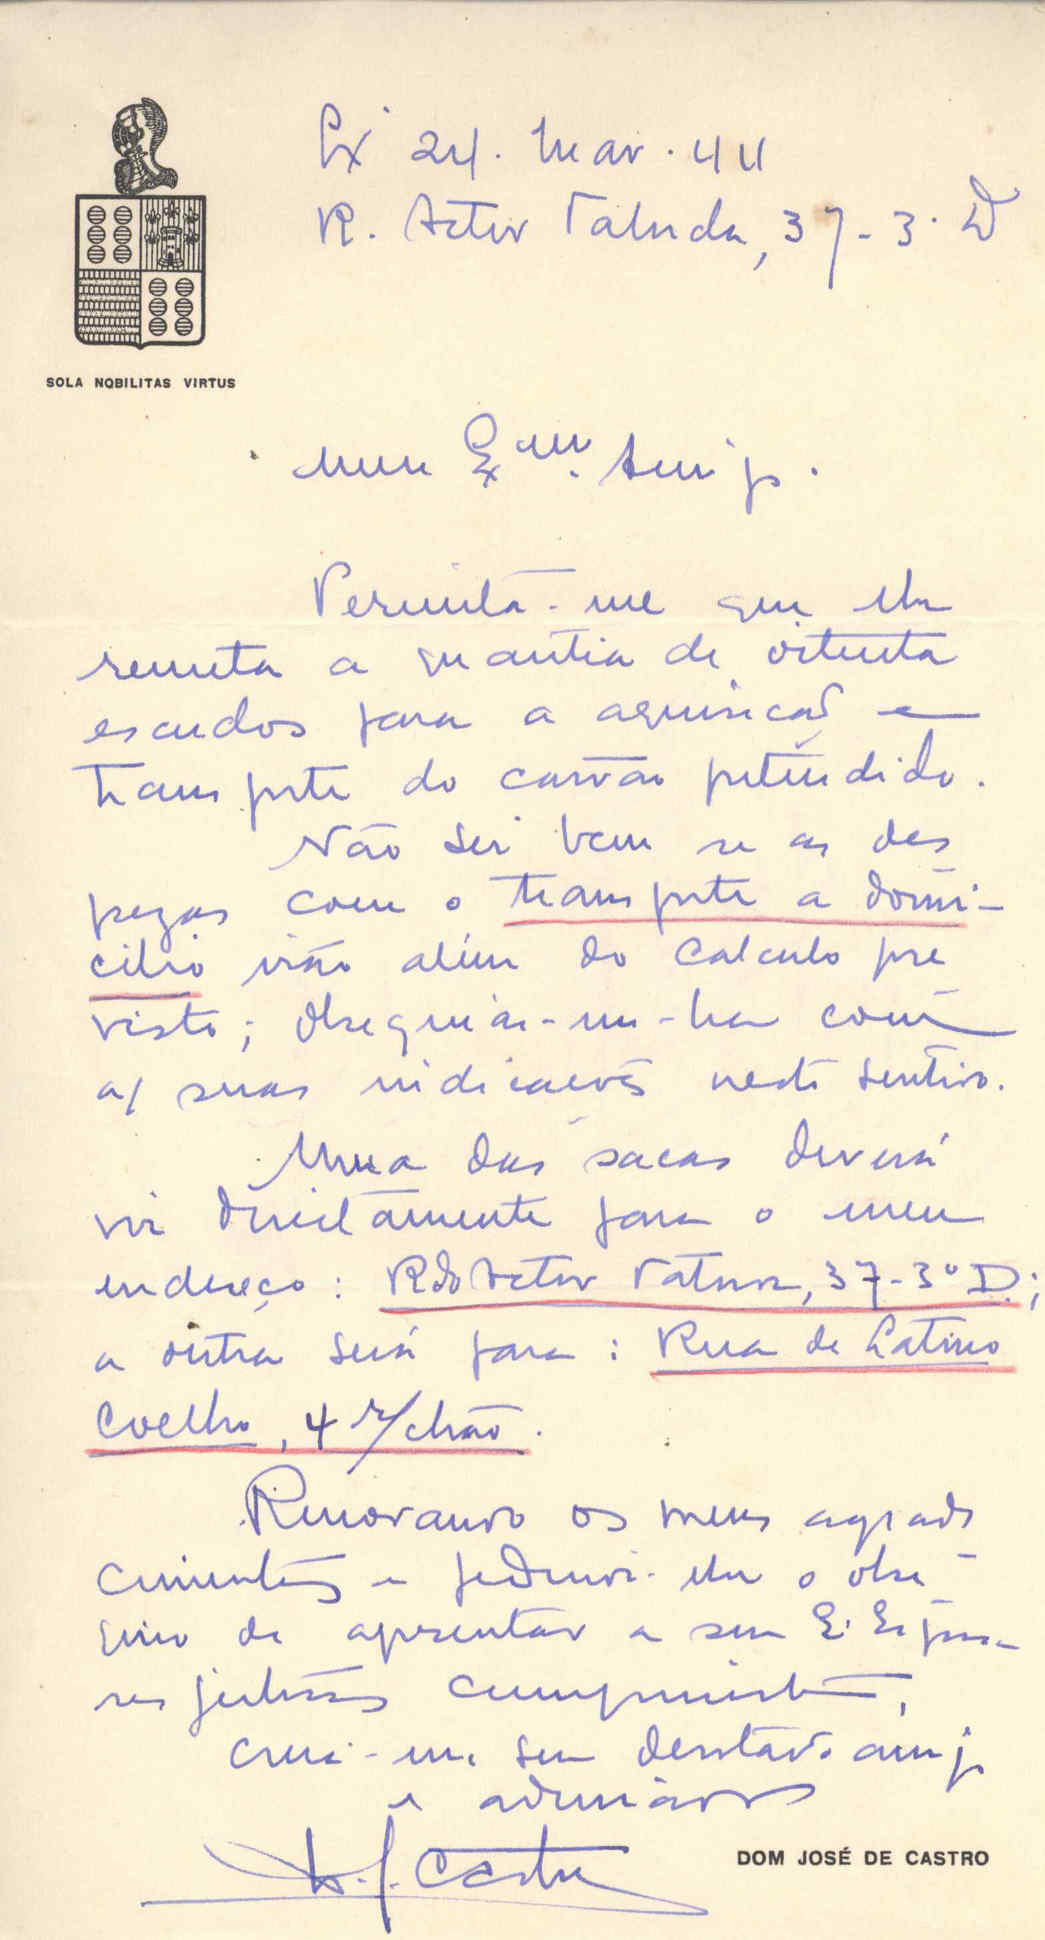 Lx 24. Mar. 44
R. Actor Taborda, 37-3. D
SOLA NOBILITAS VIRTUS
Meu Exmo. Amigo.
Permita-me que lhe
remeta a quantia de oitenta
escudos para a aquisição e
transporte do carvão pretendido.
Não sei bem se as des
pezas com o transporte a domi-
cilio irão alem do calculo pre
visto; obsequiar-me-ha com
as suas indicações neste sentido.
Uma das sacas deverá
vir directamente para o meu
endereço: R. do Actor Taborda, 37-3º D.;
a outra será para: Rua de Latino
Coelho, 4 r/chão.
Renovando os meus agrade
cimentos e pedindo-lhe o obse
quio de apresentar a sua E. Esposa
respeitosos cumprimentos,
creia-me seu devotado amigo
e admirador
D. J. Castro
DOM JOSÉ DE CASTRO